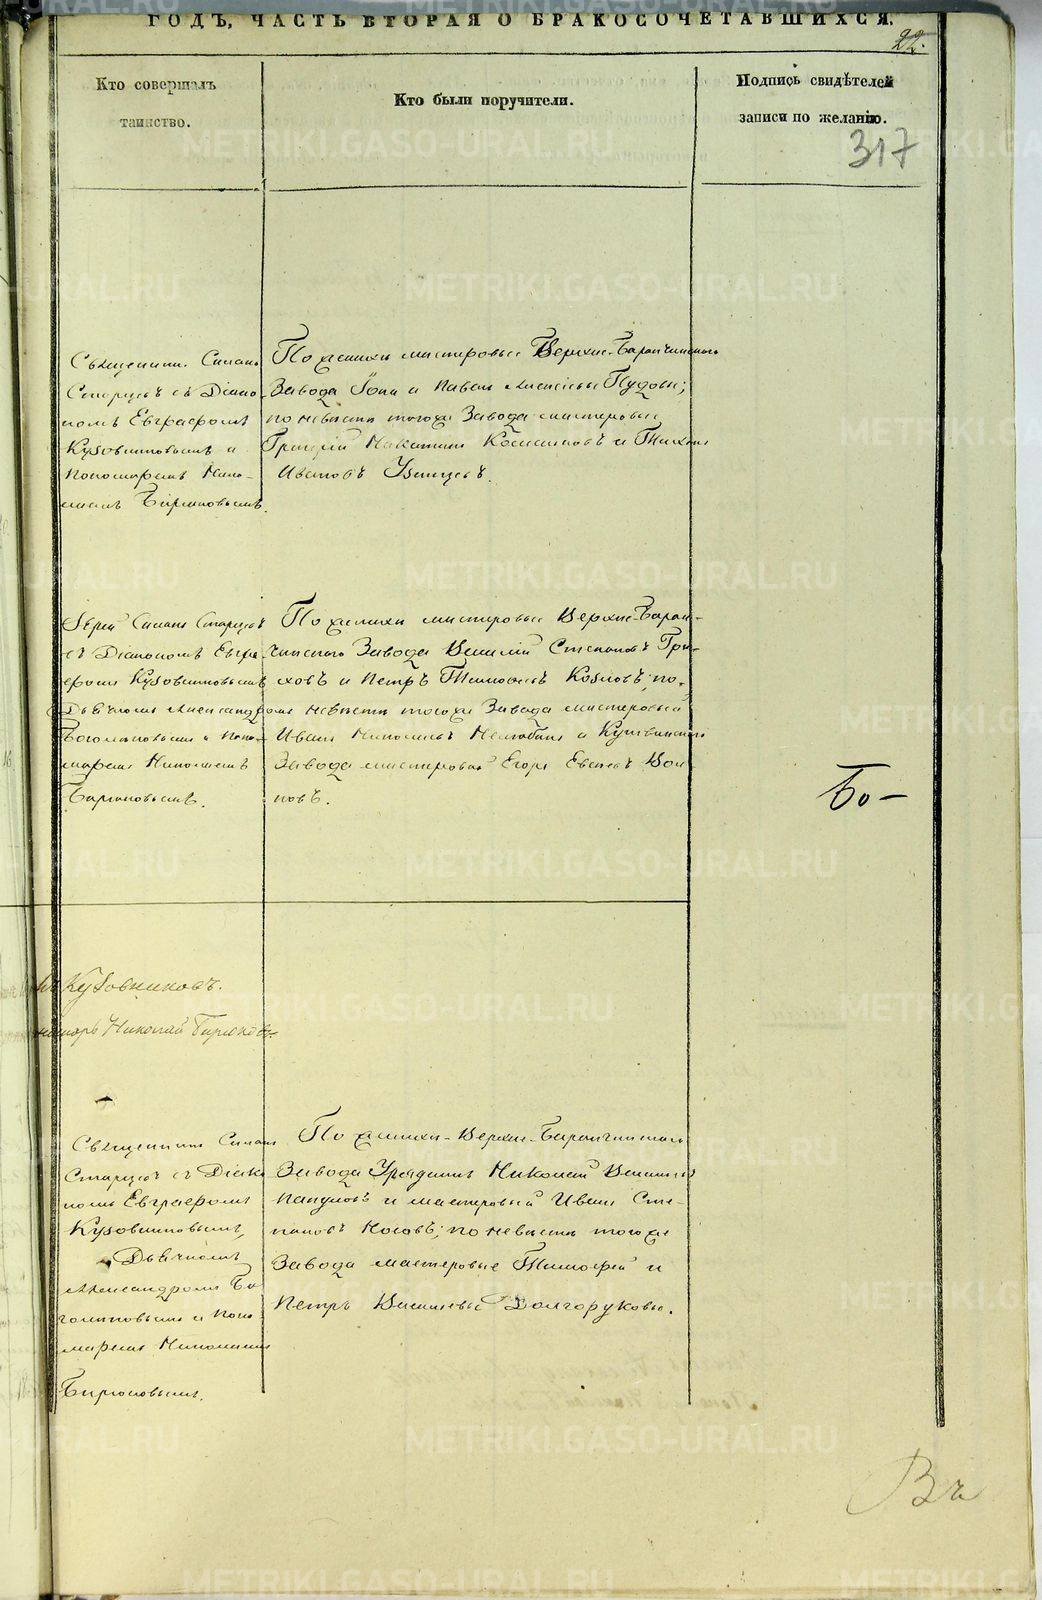 ГОДЪ, ЧАСТЬ ВТОРАЯ О БРАКОСОЧЕТАВШИХСЯ.
22.
Кто совершалъ
таинство.
Кто были поручители.
Подпись свидѣтелей
записи по желанію.
317
Священник Силанъ
Старцевъ съ Діако
номъ Евграфомъ
Кузовниковымъ и
Пономаремъ Нико-
лаемъ Бирюковымъ.
По женихѣ мастеровые Верхне-Баранчинскаго
Завода Іона и Павелъ Алексѣевы
по невѣстѣ тогоже Завода мастеровые
Григорій Никитинъ и Тихонъ
Ивановъ
Іерей Силанъ Старцевъ
съ Діакономъ Евгра-
фомъ Кузовниковымъ
Дьячкомъ Александромъ
Боголѣповымъ и Поно-
маремъ Николаемъ
Бирюковымъ.
По женихѣ мастеровые Верхне-Баран-
чинскаго Завода Василій Степановъ Гри-
ховъ и Петръ Тимофеевъ Козловъ; по
невѣстѣ тогоже Завода мастеровый
Иванъ и Кушвинскаго
Завода мастеровой Егоръ
новъ.
Бо-
Кузовниковъ.
номарь Николай Бирюковъ
Священник Силанъ
Старцевъ съ Діако
номъ Евграфомъ
Кузовниковымъ,
Дьячкомъ
Александромъ Бо
голѣповымъ и Поно
маремъ Николаемъ
Бирюковымъ.
По женихѣ-Верхне-Баранчинскаго
Завода Урядникъ Николай Васильевъ
и мастеровый Иванъ Сте-
пановъ Носовъ; по невѣстѣ тогоже
Завода мастеровые Тимофей и
Петръ Васильевы Долгоруковы.
Въ
METRIKI.GASO-URAL.RU